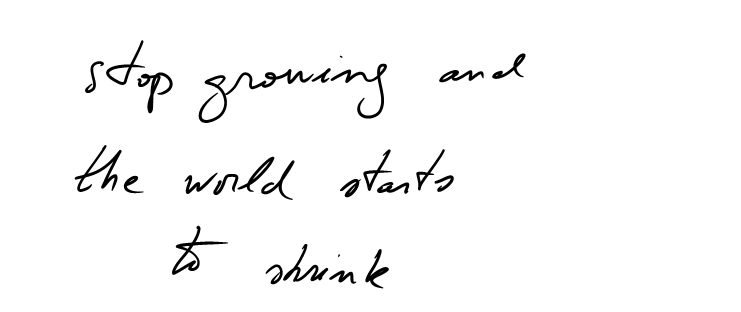 stop growing and
the world starts
to shrink